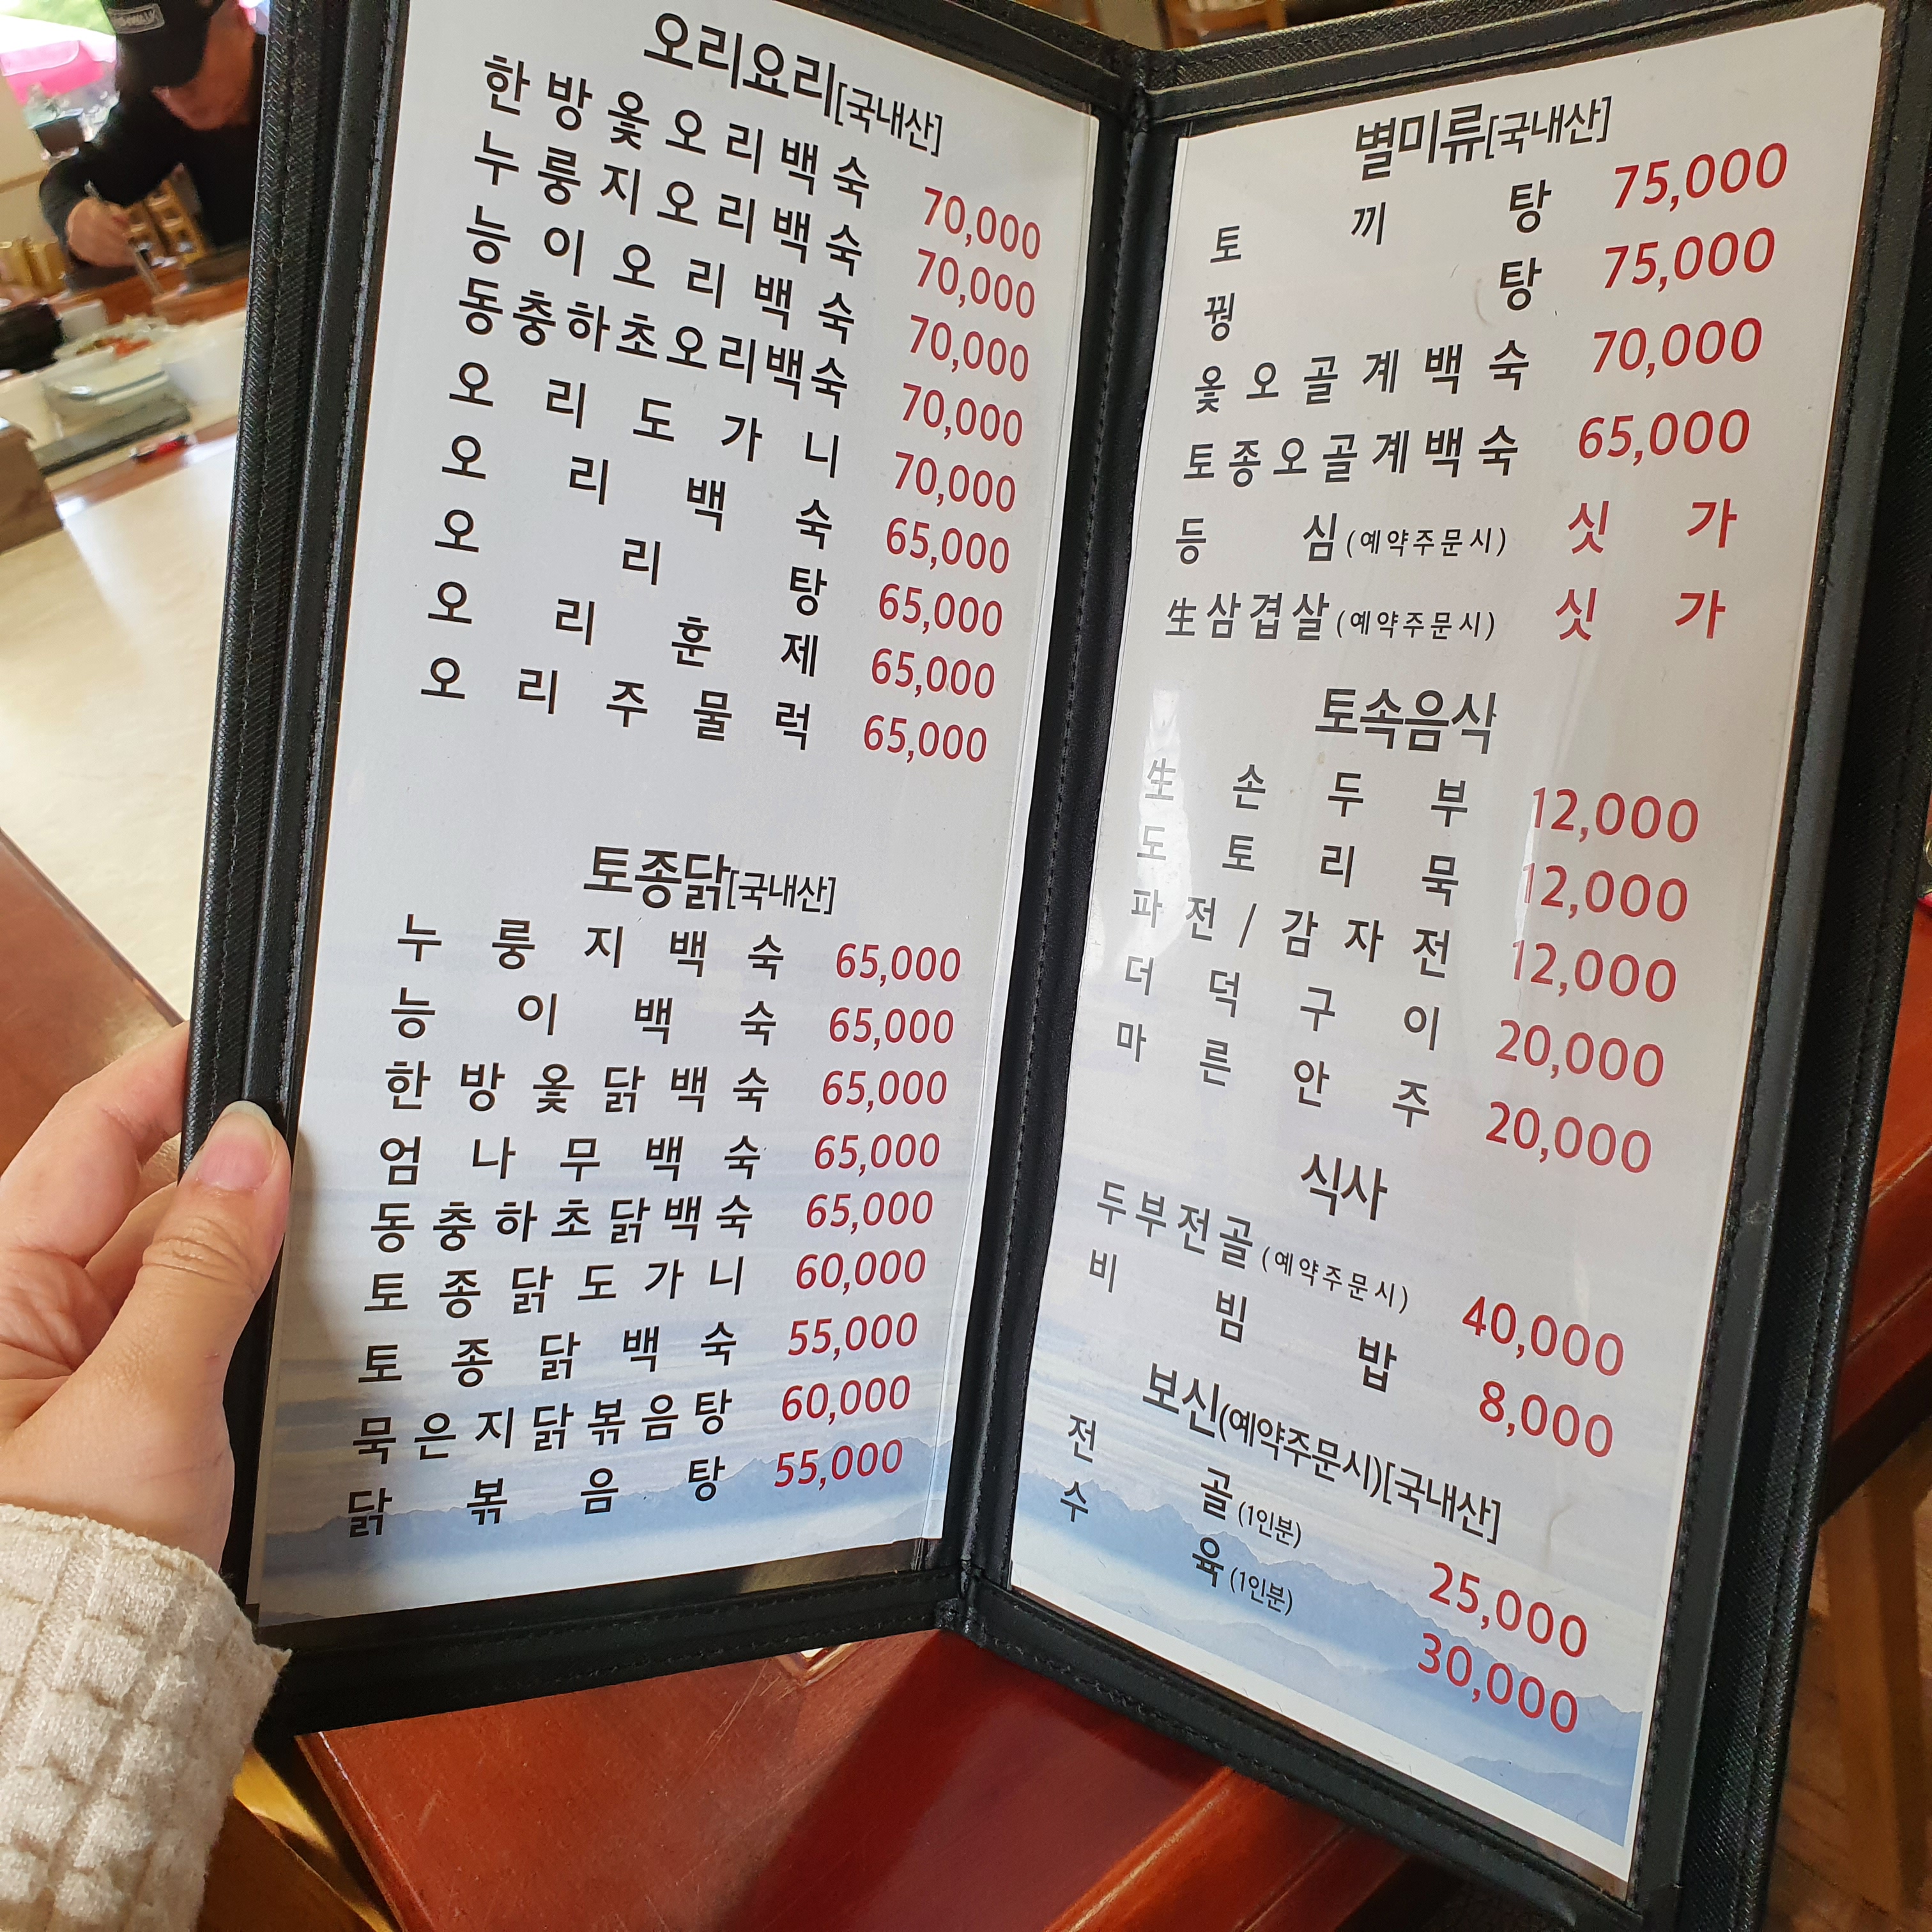 오리요리[국내산]
한방옻오리백숙 70,000
누룽지오리백숙 70,000
능이오리백숙 70,000
동충하초오리백숙 70,000
오리도가니 70,000
오리백숙 65,000
오리탕 65,000
오리훈제 65,000
오리주물럭 65,000
토종닭[국내산]
누룽지백숙 65,000
능이백숙 65,000
한방옻닭백숙 65,000
엄나무백숙 65,000
동충하초닭백숙 65,000
토종닭도가니 60,000
토종닭백숙 55,000
묵은지닭볶음탕 60,000
닭볶음탕 55,000
별미류[국내산]
토끼탕 75,000
꿩탕 75,000
옻오골계백숙 70,000
토종오골계백숙 65,000
등심(예약주문시) 싯가
生삼겹살(예약주문시) 싯가
토속음식
生손두부 12,000
도토리묵 12,000
파전/감자전 12,000
더덕구이 20,000
마른안주 20,000
식사
두부전골(예약주문시) 40,000
비빔밥 8,000
보신(예약주문시)[국내산]
전골(1인분) 25,000
수육(1인분) 30,000